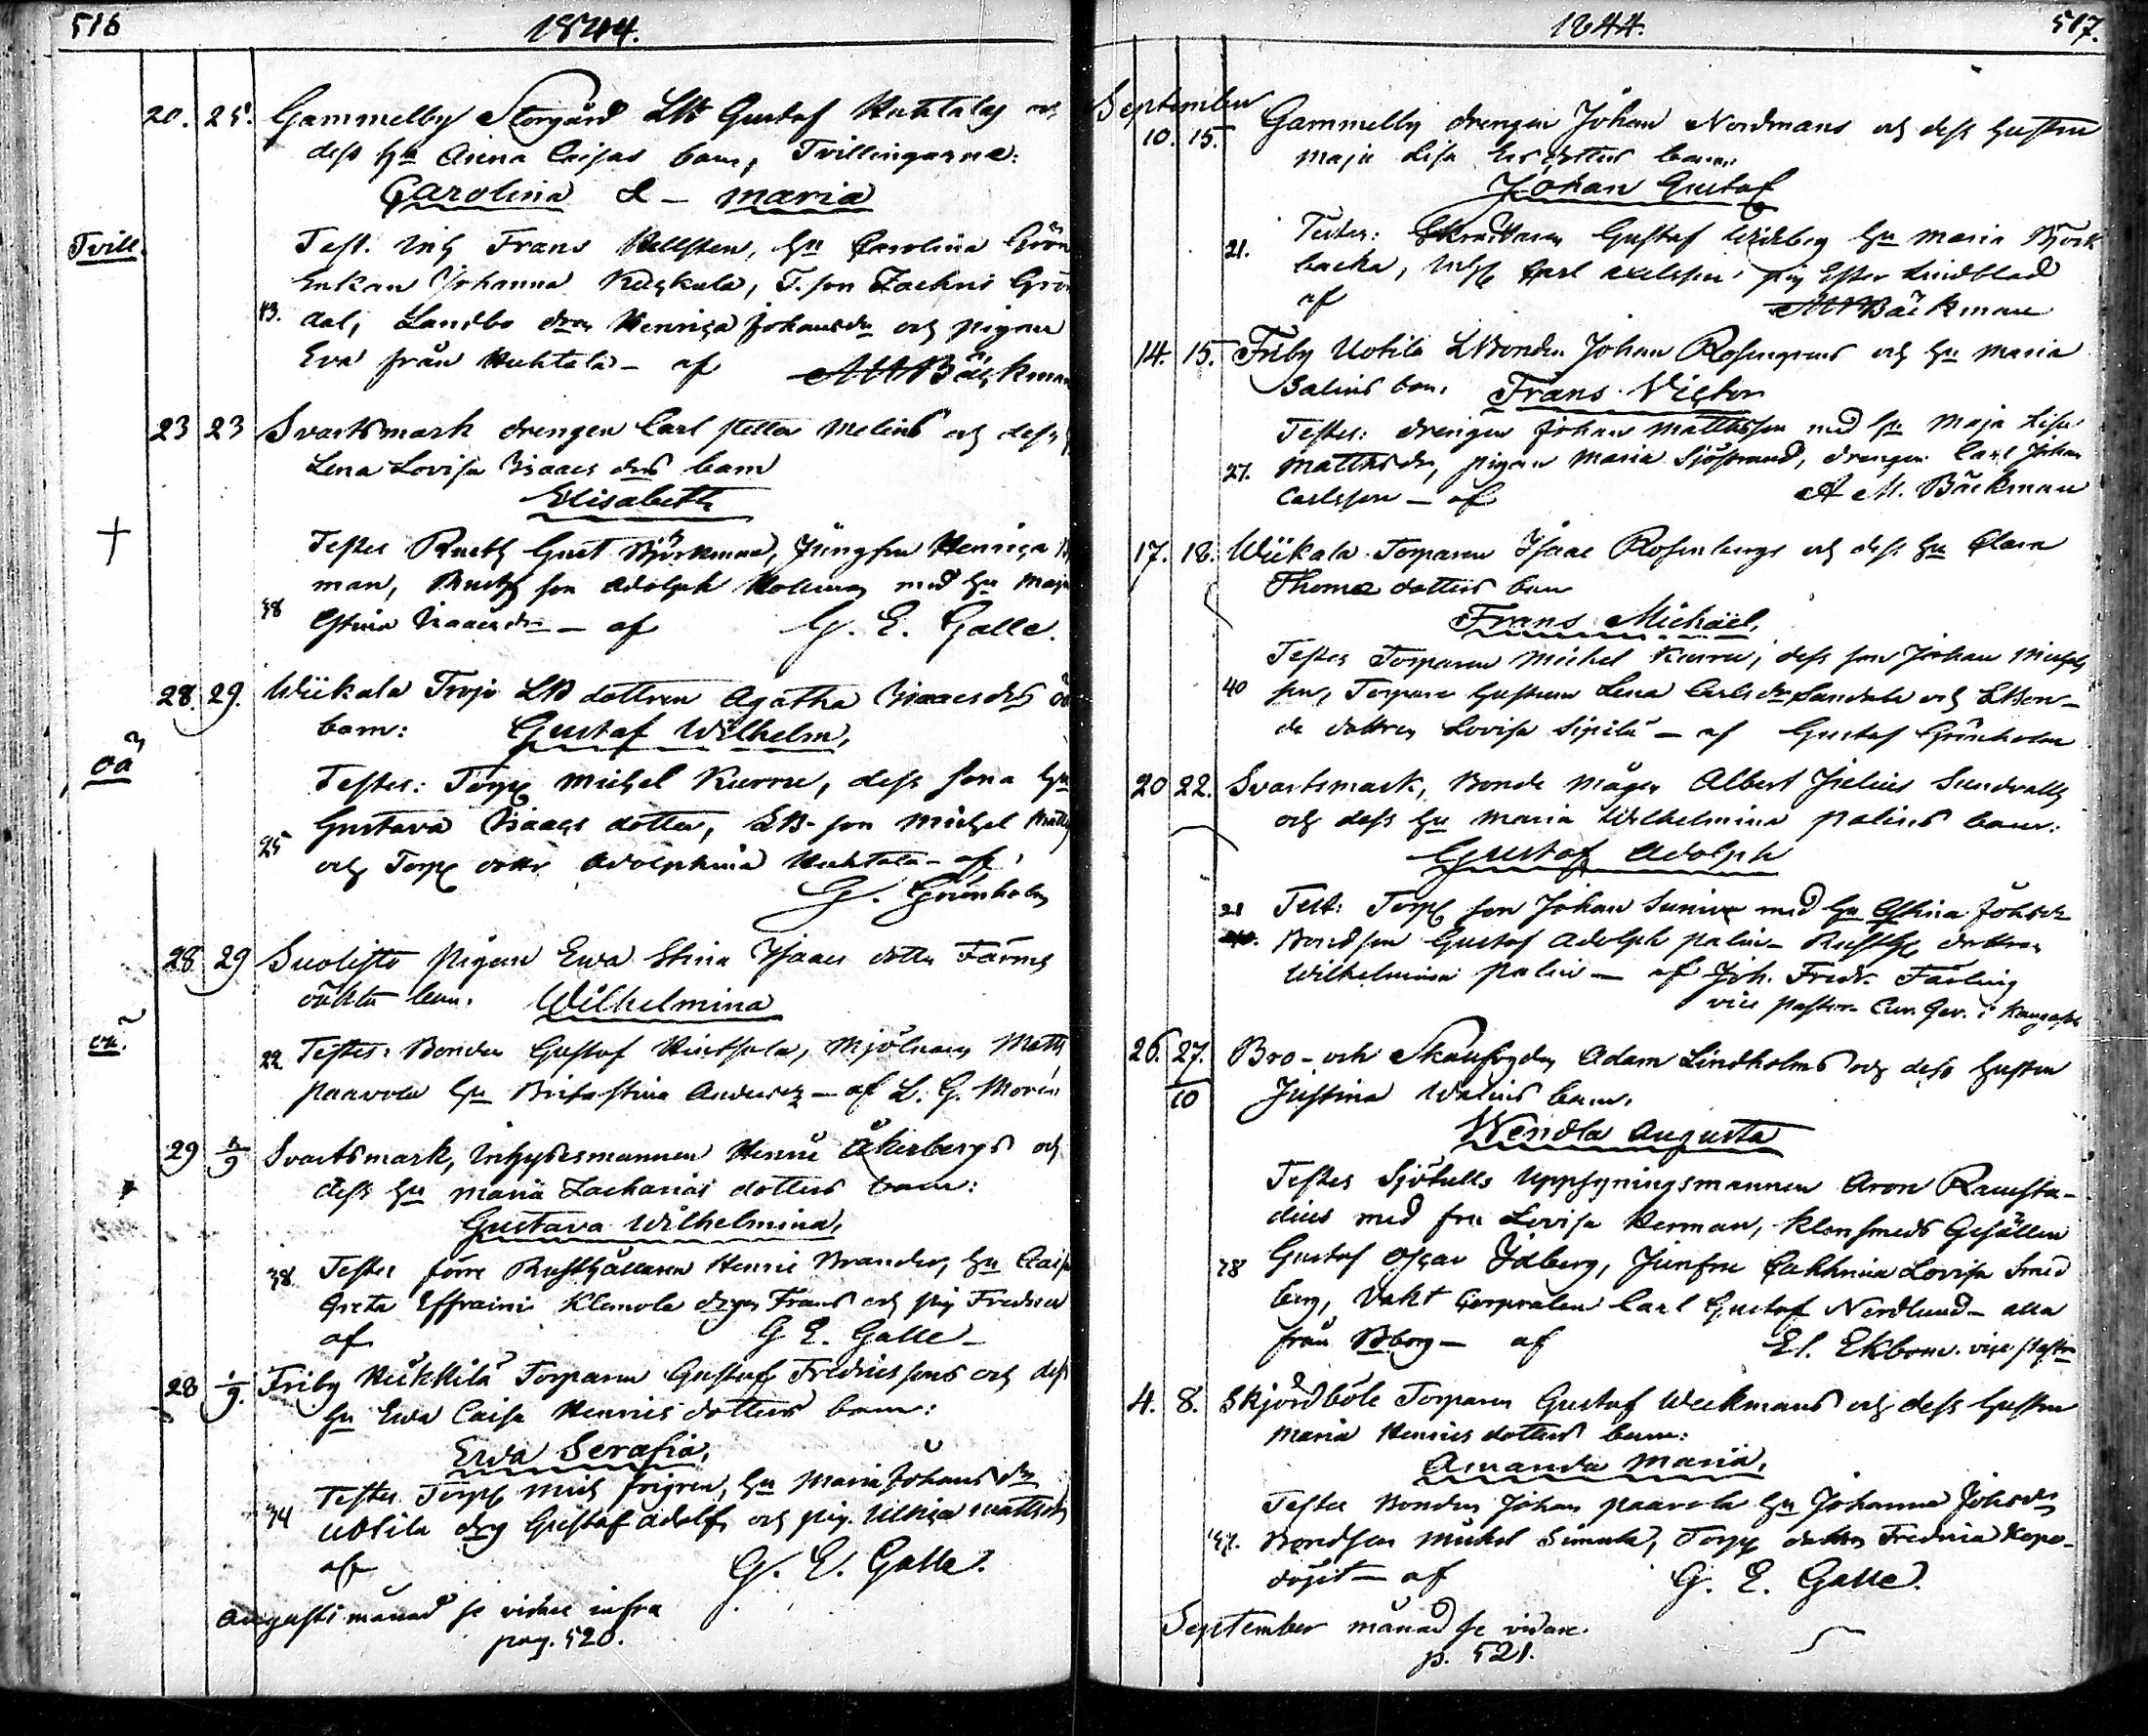 516
1844.
20. 25. Gammelby Storgård LB Gustaf Huhtalas
dess hu Anna Caisas barn, Tvillingarne:
Carolina & - Maria
Tvill.
Test. Inh Frans Hellsten, hu Carolina Grön
Enkan Johanna Kuckula, T. son Zachris
43. dal, Landbo Henrica Johansdr och pigan
Eva från Huhtala - af Bäckman
23 23 Svartsmark drengen Carl Melins och dess
Lena Lovisa Isaacs drs barn
Elisabeth
+
Testes Rusth Gust Björkman, Jungfru Henrica
man, son Adolph med hu Maja
38 Stina Isaacsdr - af G. E. Galle.
28. 29. Wiikala Troja LB dottren Agatha Isaacsdrs oä
barn: Gustaf Wilhelm.
oä
Testes: Torp Michel Kurru, dess sona hu
Gustava Isaacs dotter, LB-son Michel
25 och Torp dottr Adolphina Huhtala - af
G. Grönholm
28 29 Suolisto pigan Ewa Stina Isaacs dotter Färms
oäkta barn. Wilhelmina
oä
22 Testes: Bonden Gustaf, Mjölnaren Matts
Paavola hu Brita Stina Andersdr - af L. G. Morin
29 1/9 Svartsmark, Inhysesmannen Henric Åkerbergs och
dess hu Maria Zacharias dotters barn:
Gustava Wilhelmina.
38 Testes förre Rusthållaren Henric Brander, hu Caisa
Greta Effraim Klemola drgen Frans och pig Fredrica
af G E. Galle -
28 1/9. Friby Torparen Gustaf Fredricssons och dess
hu Ewa Caisa Henricsdotters barn:
Ewa Serafia.
Testes Torp Mich, hu Maria Johans dr
34 Uotila drg Gustaf Adolf och pig. Ulrica Mattsdr
af G. E. Galle.
Augusti månad se vidare infra
pag. 520.
1844.
517.
September
10. 15. Gammelby drengen Johan Nordmans och dess hustru
Maja Lisa Ersdotters barn
Johan Gustaf
21. Testes: Gustaf Widberg hu Maria Björk
backa, Carl Axelsson, pig Ester Lindblad
af Bäckman
14. 15. Friby Uotila LBonden Johan Rosengrens och hu Maria
Salins barn. Frans Victor
Testes: drengen Johan Mattsson med hu Maja Lisa
27. Mattsdr, pigan Maria Sjöstrand, drengen Carl Johan
Carlsson - af A M. Bäckman
17. 18. Wiikala Torparen Isaac Rosenbergs och dess hu Clara
Thomæ dotters barn
Frans Michäel.
Testes Torparen Michel Kurru, dess son Johan Michels
40 son, Torpare hustrun Lena Carlsdr Sandala och LBon-
de dottren Lovisa Sipilä - af Gustaf Grönholm
20 22. Svartsmark, Bonde Mågen Albert Julius Sundvalls
och dess hu Maria Wilhelmina Palins barn:
Gustaf Adolph
21 Test: Torp son Johan med hu Stina Johsdr
Bondson Gustaf Adolph Palin - Rusth dottren
Wilhelmina Palin - af Joh. Fredr. Färling
vice pastor
26. 27./10 Bro- och Skansfogden Adam Lindholms och dess hustru
Justina Walins barn.
Wendla Augusta
Testes Sjötulls Uppsyningsmannen Aron
dius med fru Lovisa Herman, Klensmeds Gesällen
28 Gustaf Oscar Idberg, Jumfru Lovisa Smed
berg, Vakt Corpralen Carl Gustaf Nordlund - alla
från Bborg - af El. Ekbom. vice pastor
4. 8. Skjördböle Torparen Gustaf Weckmans och dess hustru
Maria Henricsdotters barn:
Amanda Maria.
Testes Bonden Johan Paavola hu Johanna Johsdr
Bondson Michel Simula, Torp dotter Fredrica
- af G. E. Galle.
September månad se vidare.
p. 521.